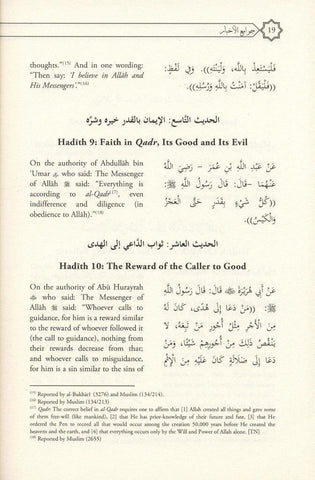 جوامع الأخبار
19
thoughts."(15) And in one wording:
"Then say: 'I believe in Allāh and
His Messengers'."(16)
فَلْيَسْتَعِذْ بِاللَّهِ، وَلْيَنْتَهِ)). وَفِي لَفْظٍ:
((فَلْيَقُلْ: آمَنْتُ بِاللَّهِ وَرُسُلِهِ)).
الحديث التاسع: الإيمان بالقدر خيره وشرّه
Hadīth 9: Faith in Qadr, Its Good and Its Evil
On the authority of Abdullāh bin
'Umar who said: The Messenger
of Allāh ﷺ said: "Everything is
according to al-Qadr(17), even
indifference and diligence (in
obedience to Allāh)."(18)
عَنْ عَبْدِ اللَّهِ بْنِ عُمَرَ – رَضِيَ اللَّهُ
عَنْهُمَا –قَالَ: قَالَ رَسُولُ اللَّهِ ﷺ:
((كُلُّ شَيْءٍ بِقَدَرٍ حَتَّى الْعَجْزُ
وَالْكَيْسُ)).
الحديث العاشر: ثواب الدَّاعي إلى الهدى
Hadīth 10: The Reward of the Caller to Good
On the authority of Abū Hurayrah
who said: The Messenger of
Allāh ﷺ said: "Whoever calls to
guidance, for him is a reward similar
to the reward of whoever followed it
(the call to guidance), nothing from
their rewards decrease from that;
and whoever calls to misguidance,
for him is a sin similar to the sins of
عَنْ أَبِي هُرَيْرَةَ قَالَ: قَالَ رَسُولُ اللَّهِ
ﷺ: ((مَنْ دَعَا إِلَى هُدًى، كَانَ لَهُ
مِنَ الْأَجْرِ مِثْلُ أُجُورِ مَنْ تَبِعَهُ، لَا
يَنْقُصُ ذَلِكَ مِنْ أُجُورِهِمْ شَيْئًا، وَمَنْ
دَعَا إِلَى ضَلَالَةٍ كَانَ عَلَيْهِ مِنَ الْإِثْمِ
(15) Reported by al-Bukhārī (3276) and Muslim (134/214).
(16) Reported by Muslim (134/213)
(17) Qadr: The correct belief in al-Qadr requires one to affirm that [1] Allāh created all things and gave some
of them free-will (like mankind), [2] that He has prior-knowledge of their future and fate, [3] that He
ordered the Pen to record all that would occur among the creation 50,000 years before He created the
heavens and the earth, and [4] that everything occurs only by the Will and Power of Allāh alone. [TN]
(18) Reported by Muslim (2655)